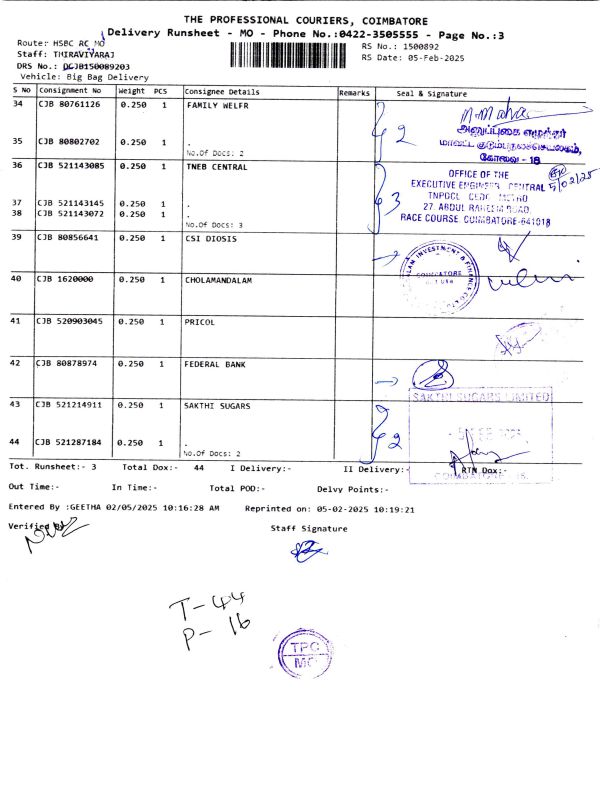 THE PROFESSIONAL COURIERS, COIMBATORE
Delivery Runsheet - MO - Phone No.:0422-3505555 - Page No.:3
Route: HSBC RC MO
Staff: THIRAVIYARAJ
DRS No.: DCJB150089203
Vehicle: Big Bag Delivery
RS No.: 1500892
RS Date: 05-Feb-2025
S No Consignment No Weight PCS Consignee Details Remarks Seal & Signature
34 CJB 80761126 0.250 1 FAMILY WELFR
35 CJB 80802702 0.250 1 .
No.Of Docs: 2
2
அனுப்புகை எழுத்தர்
மாவட்ட குடும்பநலச்செயலகம்,
கோவை - 18
36 CJB 521143085 0.250 1 TNEB CENTRAL
37 CJB 521143145 0.250 1 .
38 CJB 521143072 0.250 1 .
No.Of Docs: 3
3
OFFICE OF THE
EXECUTIVE ENGINEER CENTRAL
TNPDCL CEDC METRO
27, ABDUL RAHEEM ROAD,
RACE COURSE, COIMBATORE-641018
5/02/25
39 CJB 80856641 0.250 1 CSI DIOSIS
40 CJB 1620000 0.250 1 CHOLAMANDALAM
INVESTMENT & FINANCE
COIMBATORE
41 CJB 520903045 0.250 1 PRICOL
42 CJB 80878974 0.250 1 FEDERAL BANK
43 CJB 521214911 0.250 1 SAKTHI SUGARS
44 CJB 521287184 0.250 1 .
No.Of Docs: 2
2
SAKTHI SUGARS LIMITED
COIMBATORE - 18.
Tot. Runsheet:- 3 Total Dox:- 44 I Delivery:- II Delivery:- RTN Dox:-
Out Time:- In Time:- Total POD:- Delvy Points:-
Entered By :GEETHA 02/05/2025 10:16:28 AM Reprinted on: 05-02-2025 10:19:21
Verified By
Staff Signature
T- 44
P- 16
TPC
MO